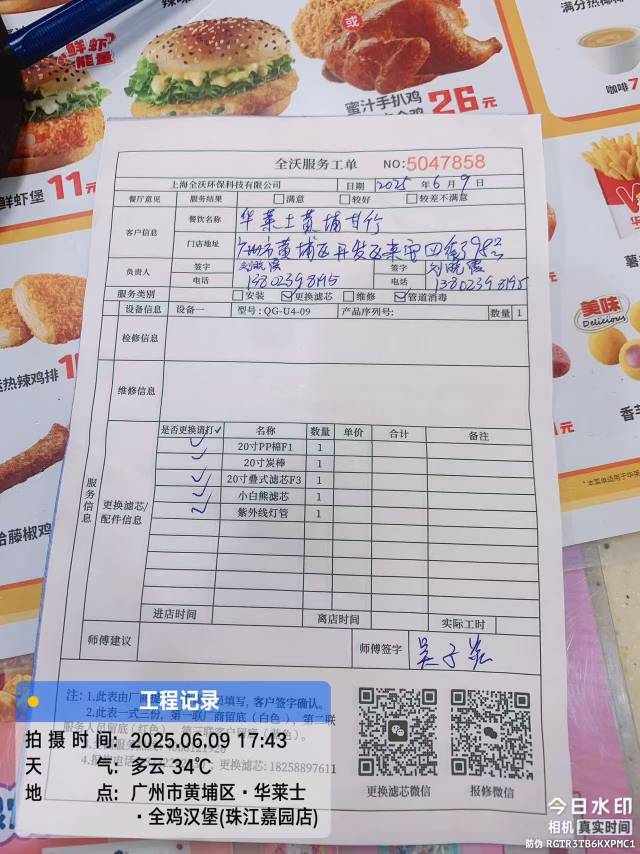 鲜虾
能量
或
辣味
蜜汁手扒鸡
26元
满分热椰椰
咖啡 7
鲜虾堡 11元
热辣鸡排
藤椒鸡
美味
Delicious
全沃服务工单 NO:5047858
上海全沃环保科技有限公司 日期 2025年6月9日
餐厅意见 服务结果 满意 较好 较差不满意
客户信息 餐饮名称 华莱士黄埔甘竹
门店地址 广州市黄埔区开发区东
负责人 签字 刘晓霞 签字 刘晓霞
电话 13802398195 电话 13802398195
服务类别 安装 ✓更换滤芯 维修 ✓管道消毒
设备信息 设备一 型号:QG-U4-09 产品序列号: 数量 1
检修信息
维修信息
服务信息
更换滤芯/配件信息
是否更换请打✓ 名称 数量 单价 合计 备注
✓ 20寸PP棉F1 1
✓ 20寸炭棒 1
✓ 20寸叠式滤芯F3 1
✓ 小白熊滤芯 1
✓ 紫外线灯管 1
进店时间 离店时间 实际工时
师傅建议 师傅签字 吴子
注: 1.此表由厂 填写, 客户签字确认。
2.此表一式三份, 第一联厂商留底(白色), 第二联
服务人员留底(红色), 第三联客户留底(黄色)
更换滤芯: 18258897611
更换滤芯微信 报修微信
工程记录
拍摄时间: 2025.06.09 17:43
天气: 多云 34℃
地点: 广州市黄埔区·华莱士
·全鸡汉堡(珠江嘉园店)
今日水印
相机 真实时间
防伪 RGTR3TB6KXPMC1